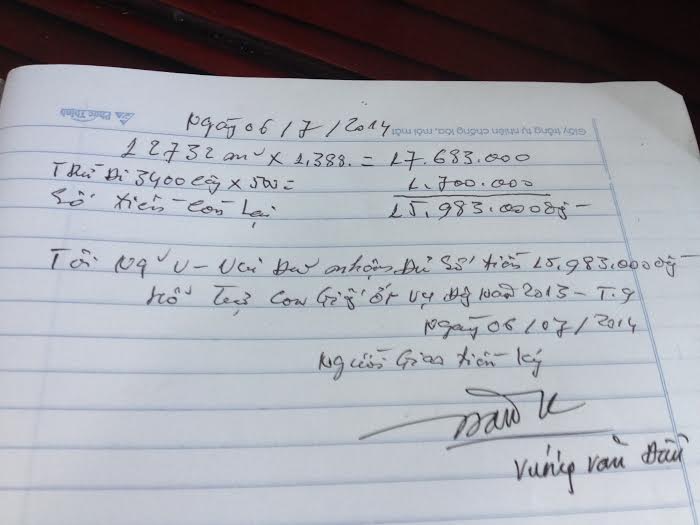 Phúc Thịnh
Giấy trắng tự nhiên chống lóa, mỏi mắt
Ngày 06/7/2014
12732 m² x 1,388. = 17.683.000
Trừ Đi 3400 cây x 500 = 1.700.000
Số tiền còn lại 15.983.000đ
Tôi Đã nhận Đủ Số tiền 15.983.000đ
Hỗ Trợ Con Giống ớt vụ 2013 - T.9
Ngày 06/07/2014
Người Giao tiền ký
Văn